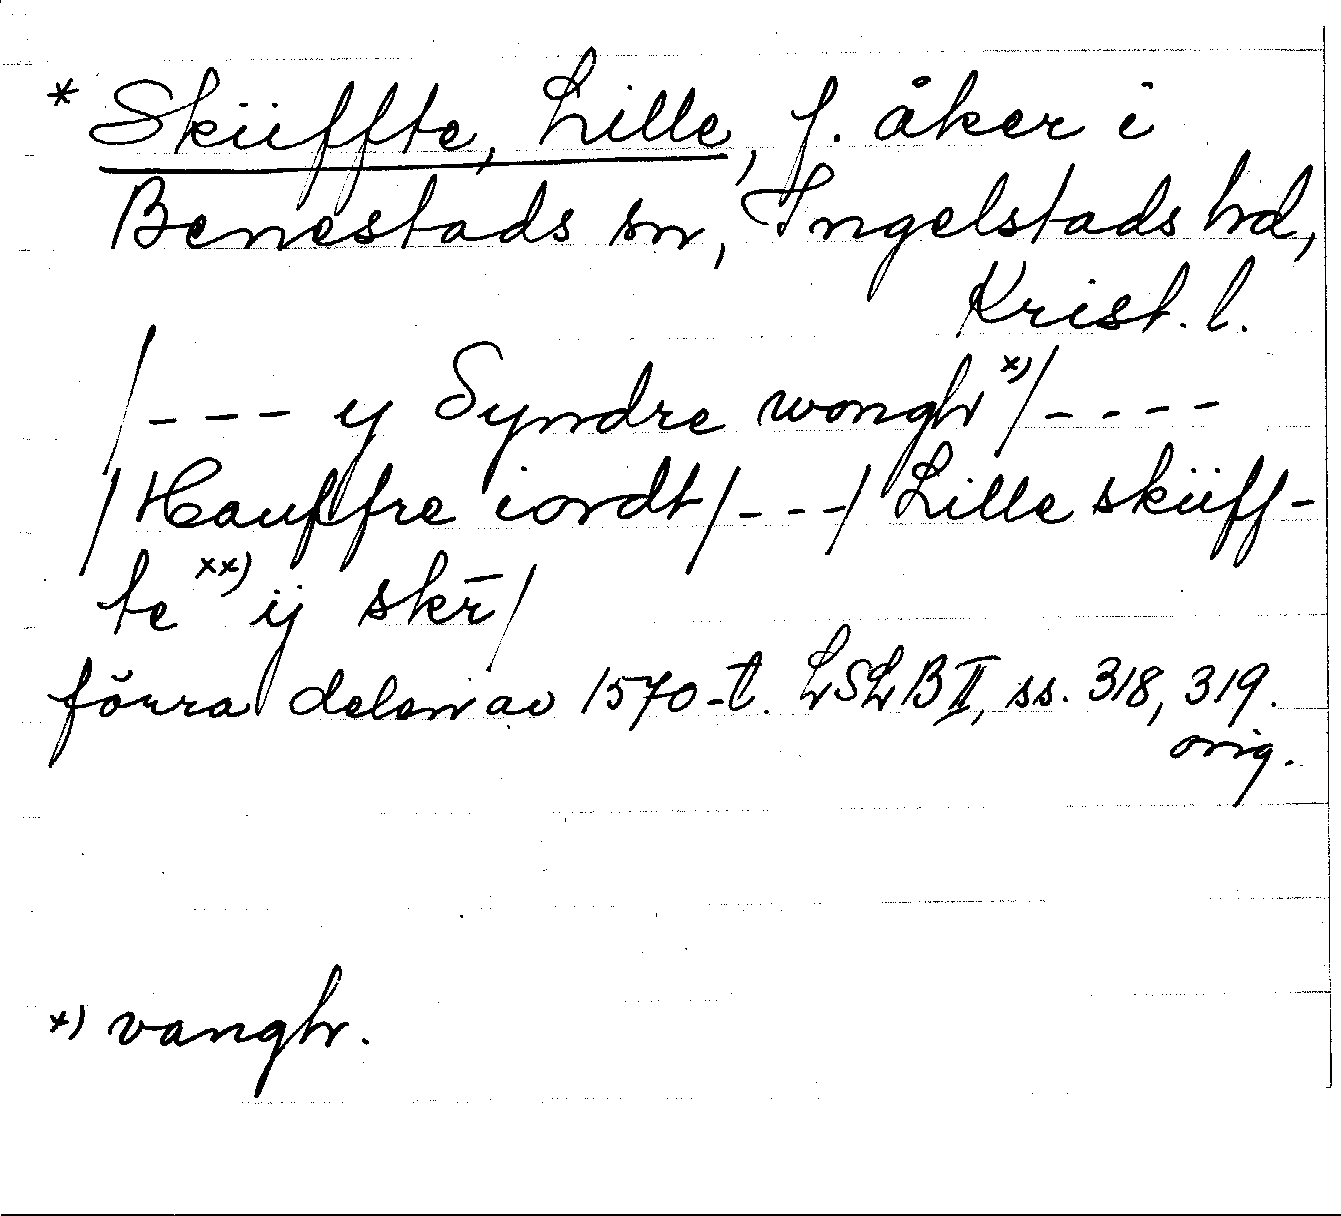 * Skiiffte, Lille, f. åker i
Benestads sn, Ingelstads hd,
Krist. l.
/--- y Syndre wongh x)/----
/Hauffre iordt/---/ Lille skiiff-
te xx) ij skr̄/
förra delen av 1570-t. LSLB II, ss. 318, 319.
orig.
x) vangh.